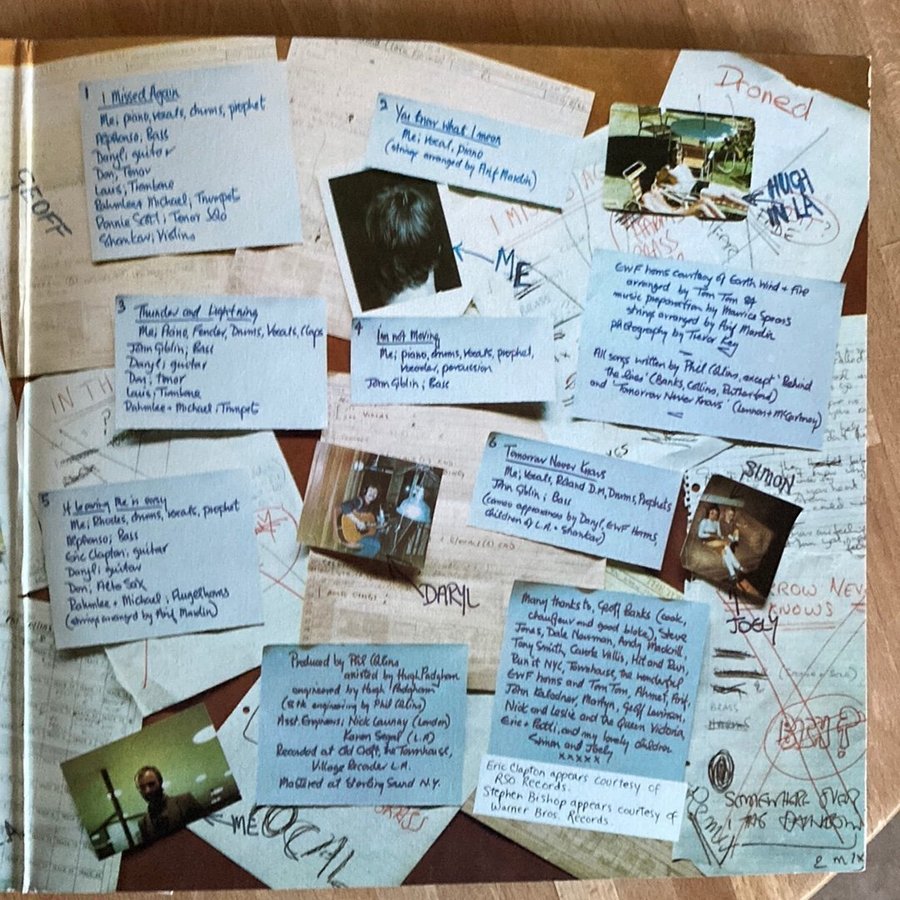 1 I Missed Again
Me; piano, vocals, drums, prophet
Alphonso; Bass
Daryl; guitar
Don; Tenor
Louis; Trombone
Rahmlee + Michael; Trumpet
Ronnie Scott; Tenor Solo
Shankar; Violins
2 You know what I mean
Me; vocal, piano
(strings arranged by Arif Mardin)
Droned
HUGH
IN LA
GEOFF
ME
3 Thunder and Lightning
Me; Piano, Fender, Drums, Vocals, Claps
John Giblin; Bass
Daryl; guitar
Don; tenor
Louis; Trombone
Rahmlee + Michael; Trumpet
4 I'm not Moving
Me; piano, drums, vocals, prophet,
Vocoder, percussion
John Giblin; Bass
EWF horns courtesy of Earth Wind + Fire
arranged by Tom Tom 84
music preparation by Maurice Spears
strings arranged by Arif Mardin
photography by Trevor Key
All songs written by Phil Collins, except 'Behind
the lines' (Banks, Collins, Rutherford)
and 'Tomorrow Never Knows' (Lennon + McCartney)
IN TH
?
5 If leaving Me is easy
Me; Rhodes, drums, vocals, prophet
Alphonso; Bass
Eric Clapton; guitar
Daryl; guitar
Don; Alto Sax
Rahmlee + Michael; Flugelhorns
(strings arranged by Arif Mardin)
6 Tomorrow Never Knows
Me; Vocals, Roland D.M, Drums, Prophets
John Giblin; Bass
(cameo appearances by Daryl, EWF Horns,
children of L.A. + Shankar)
SIMON
DARYL
JOELY
ROW NEVE
KNOWS
Produced by Phil Collins
assisted by Hugh Padgham
engineered by Hugh Padgham
(8TK engineering by Phil Collins)
Asst Engineers; Nick Launay (London)
Karen Siegel (L.A)
Recorded at Old Croft, the Townhouse,
Village Recorder L.A.
Mastered at Sterling Sound N.Y.
Many thanks to, Geoff Banks (cook,
chauffeur and good bloke), Steve
Jones, Dale Newman, Andy Mackrill,
Tony Smith, Carole Willis, Hit and Run,
Run it NYC, Townhouse, the wonderful
EWF horns and Tom Tom, Ahmet, Arif,
John Kalodner, Martyn, Geoff
Nick and Leslie and the Queen Victoria,
Eric + Patti, and my lovely children
Simon and Joely
xxxxx
Eric Clapton appears courtesy of
RSO Records.
Stephen Bishop appears courtesy of
Warner Bros. Records.
BRASS
ME
SOMEWHERE OVER